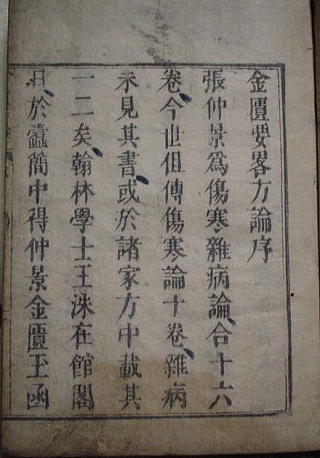 金匱要畧方論序
張仲景爲傷寒雜病論合十六
卷今世但傳傷寒論十卷雜病
未見其書或於諸家方中載其
一二矣翰林學士王洙在館閣
日於蠹簡中得仲景金匱玉函